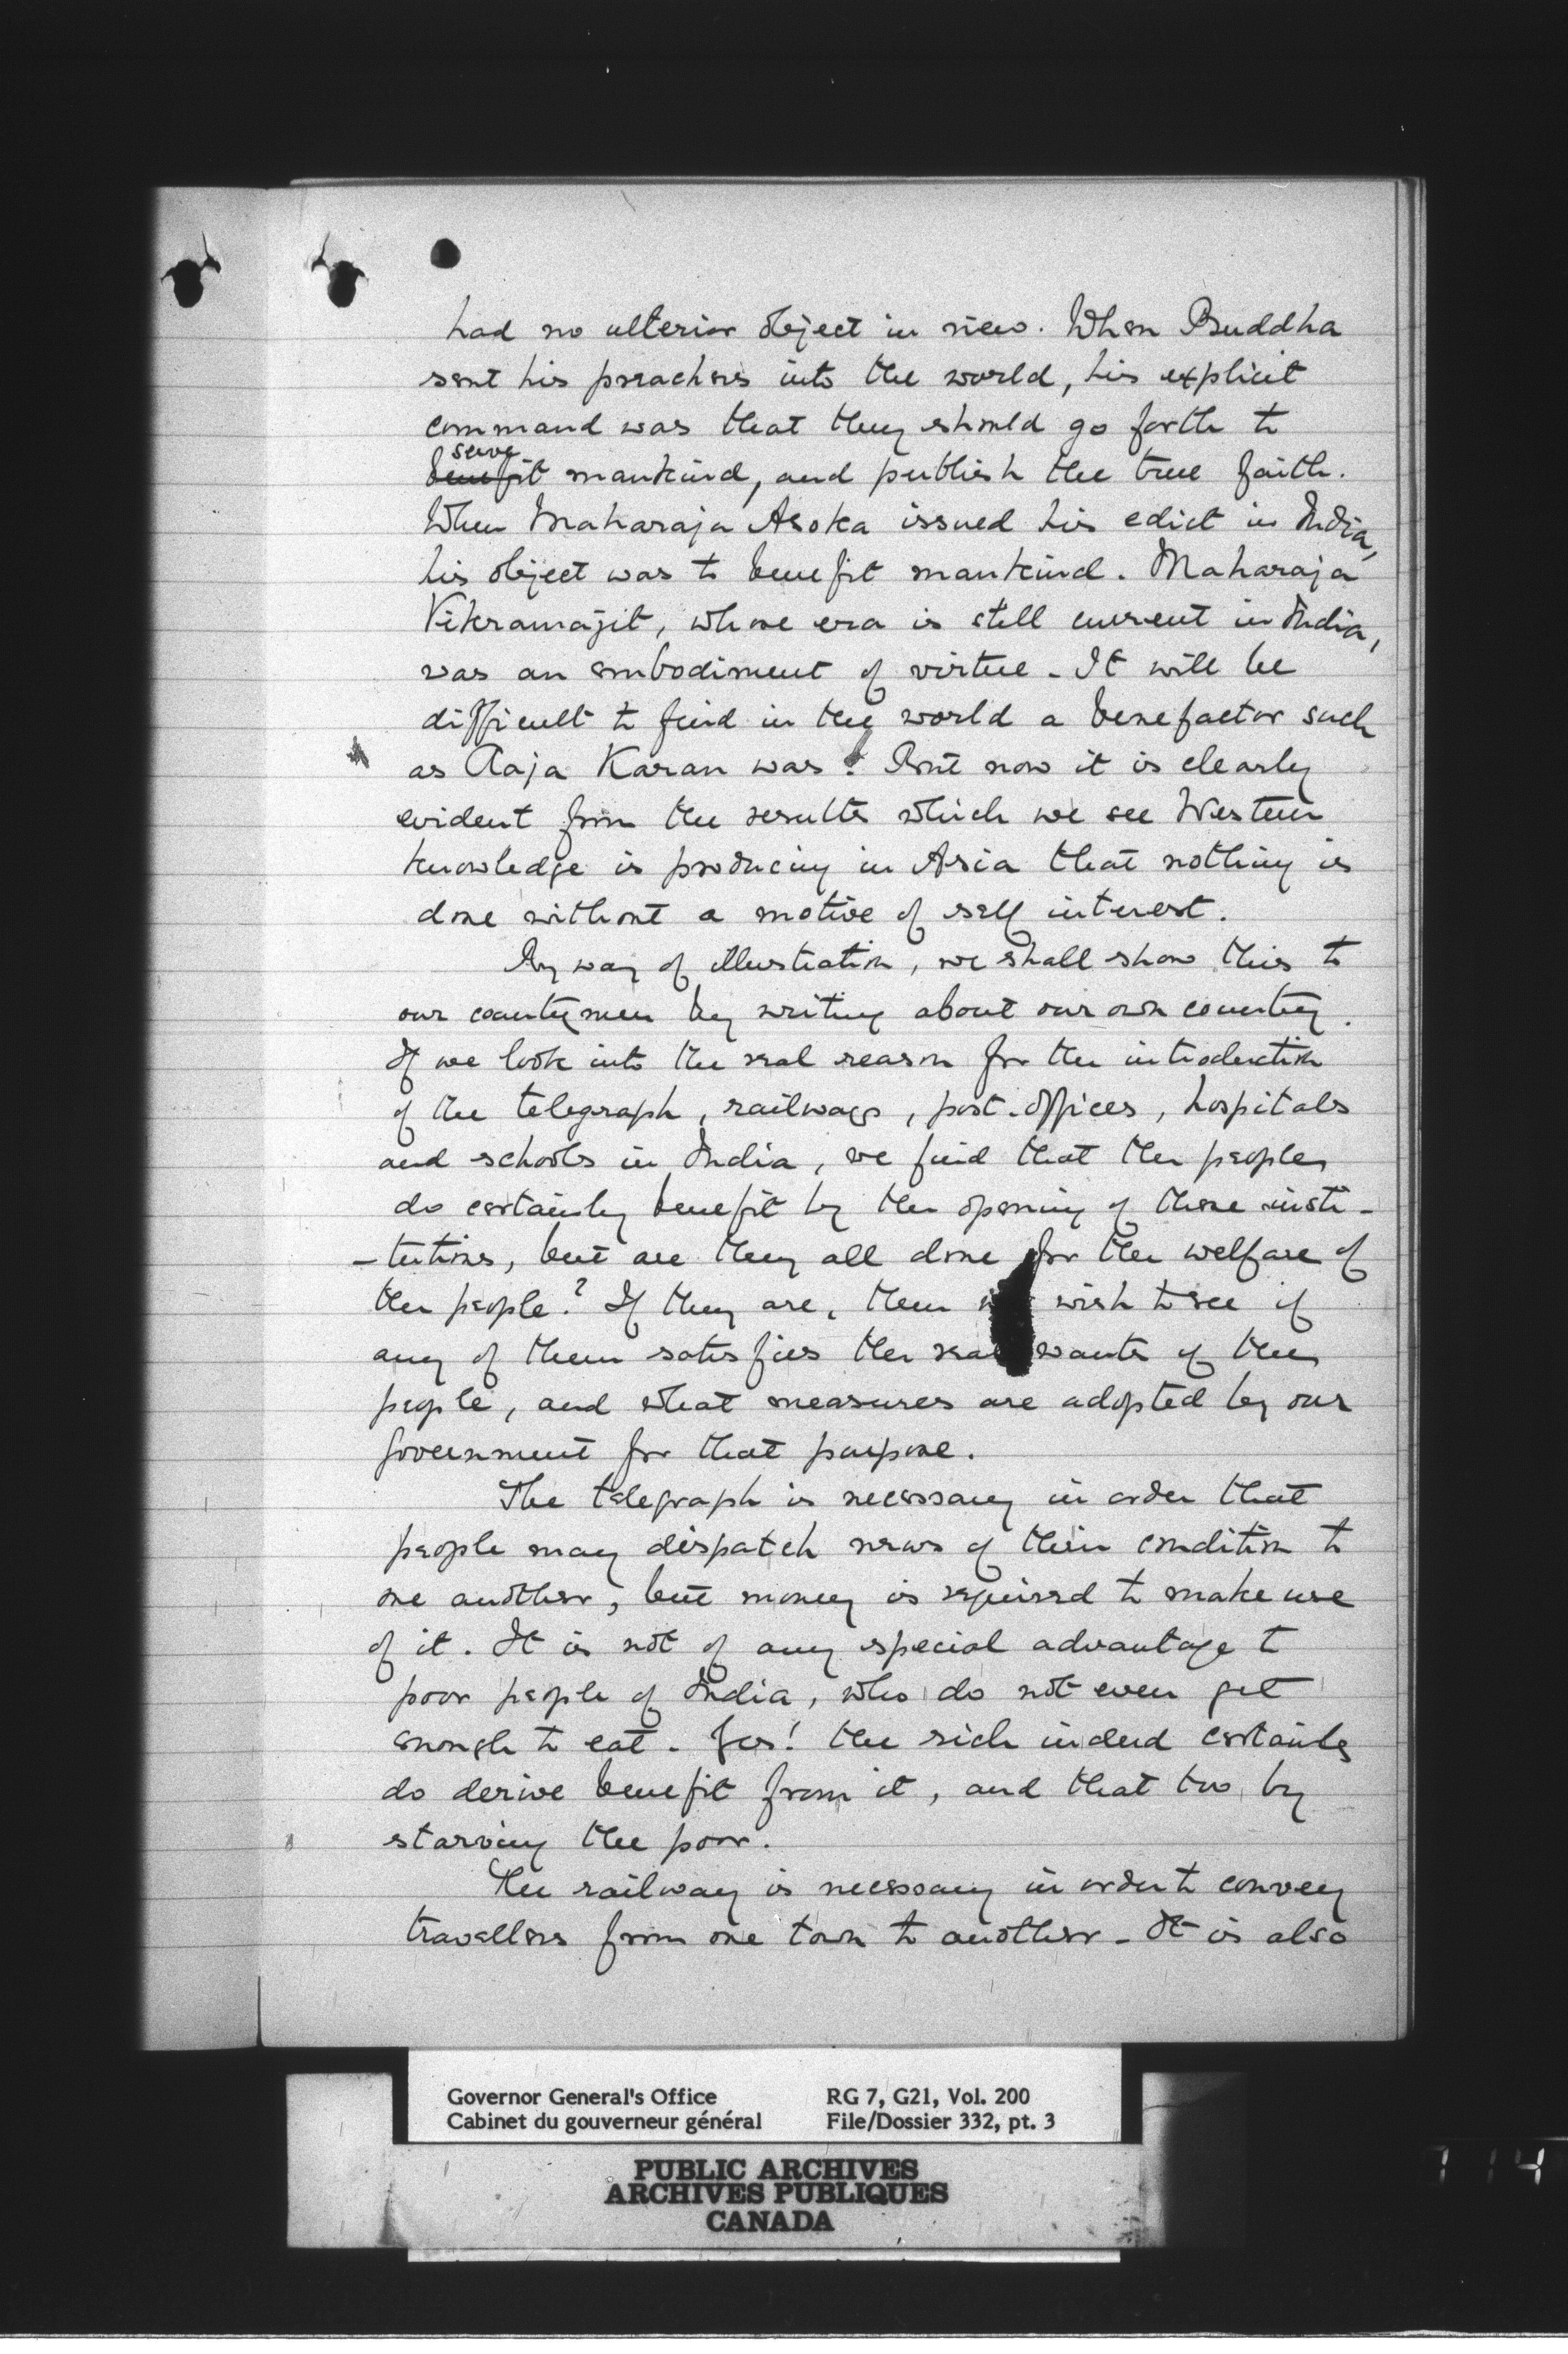 had no ulterior object in view. When Buddha
sent his preachers into the world, his explicit
command was that they should go forth to
serve
benefit mankind, and publish the true faith.
When Maharaja Asoka issued his edict in India,
his object was to benefit mankind. Maharaja
Vikramajit, whose era is still current in India,
was an embodiment of virtue. It will be
difficult to find in the world a benefactor such
as Raja Karan was! But now it is clearly
evident from the results which we see Western
knowledge is producing in Asia that nothing is
done without a motive of self interest.
By way of illustration, we shall show this to
our countrymen by writing about our own country.
If we look into the real reason for the introduction
of the telegraph, railways, post-offices, hospitals
and schools in India, we find that the people
do certainly benefit by the opening of these insti-
-tutions, but are they all done for the welfare of
the people? If they are, then wish to see if
any of them satisfies the real wants of the
people, and what measures are adopted by our
Government for that purpose.
The telegraph is necessary in order that
people may dispatch news of their condition to
one another, but money is required to make use
of it. It is not of any special advantage to
poor people of India, who do not even get
enough to eat. Yes! the rich indeed certainly
do derive benefit from it, and that too by
starving the poor.
The railway is necessary in order to convey
travellers from one town to another. It is also
Governor General's Office RG 7, G21, Vol. 200
Cabinet du gouverneur général File/Dossier 332, pt. 3
PUBLIC ARCHIVES
ARCHIVES PUBLIQUES
CANADA
114